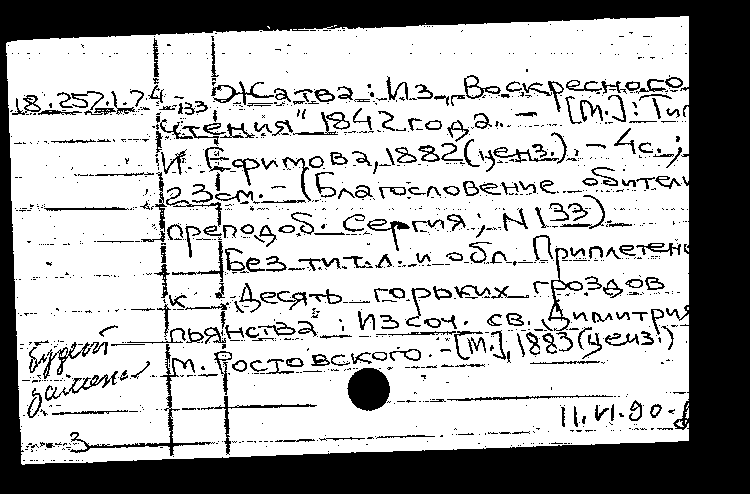 18.257.1.74-133 Жатва: Из „Воскресного
чтения" 1842 года. - [М.]: Тип
И. Ефимова, 1882 (ценз.). - 4с.;
23см. - (Благословение обители
преподоб. Сергия; N 133)
Без тит.л. и обл. Приплетено
к: Десять горьких гроздов
пьянства": Из соч. св. Димитрия
м. Ростовского. - [М.], 1883 (ценз.)
11.VI.90
3